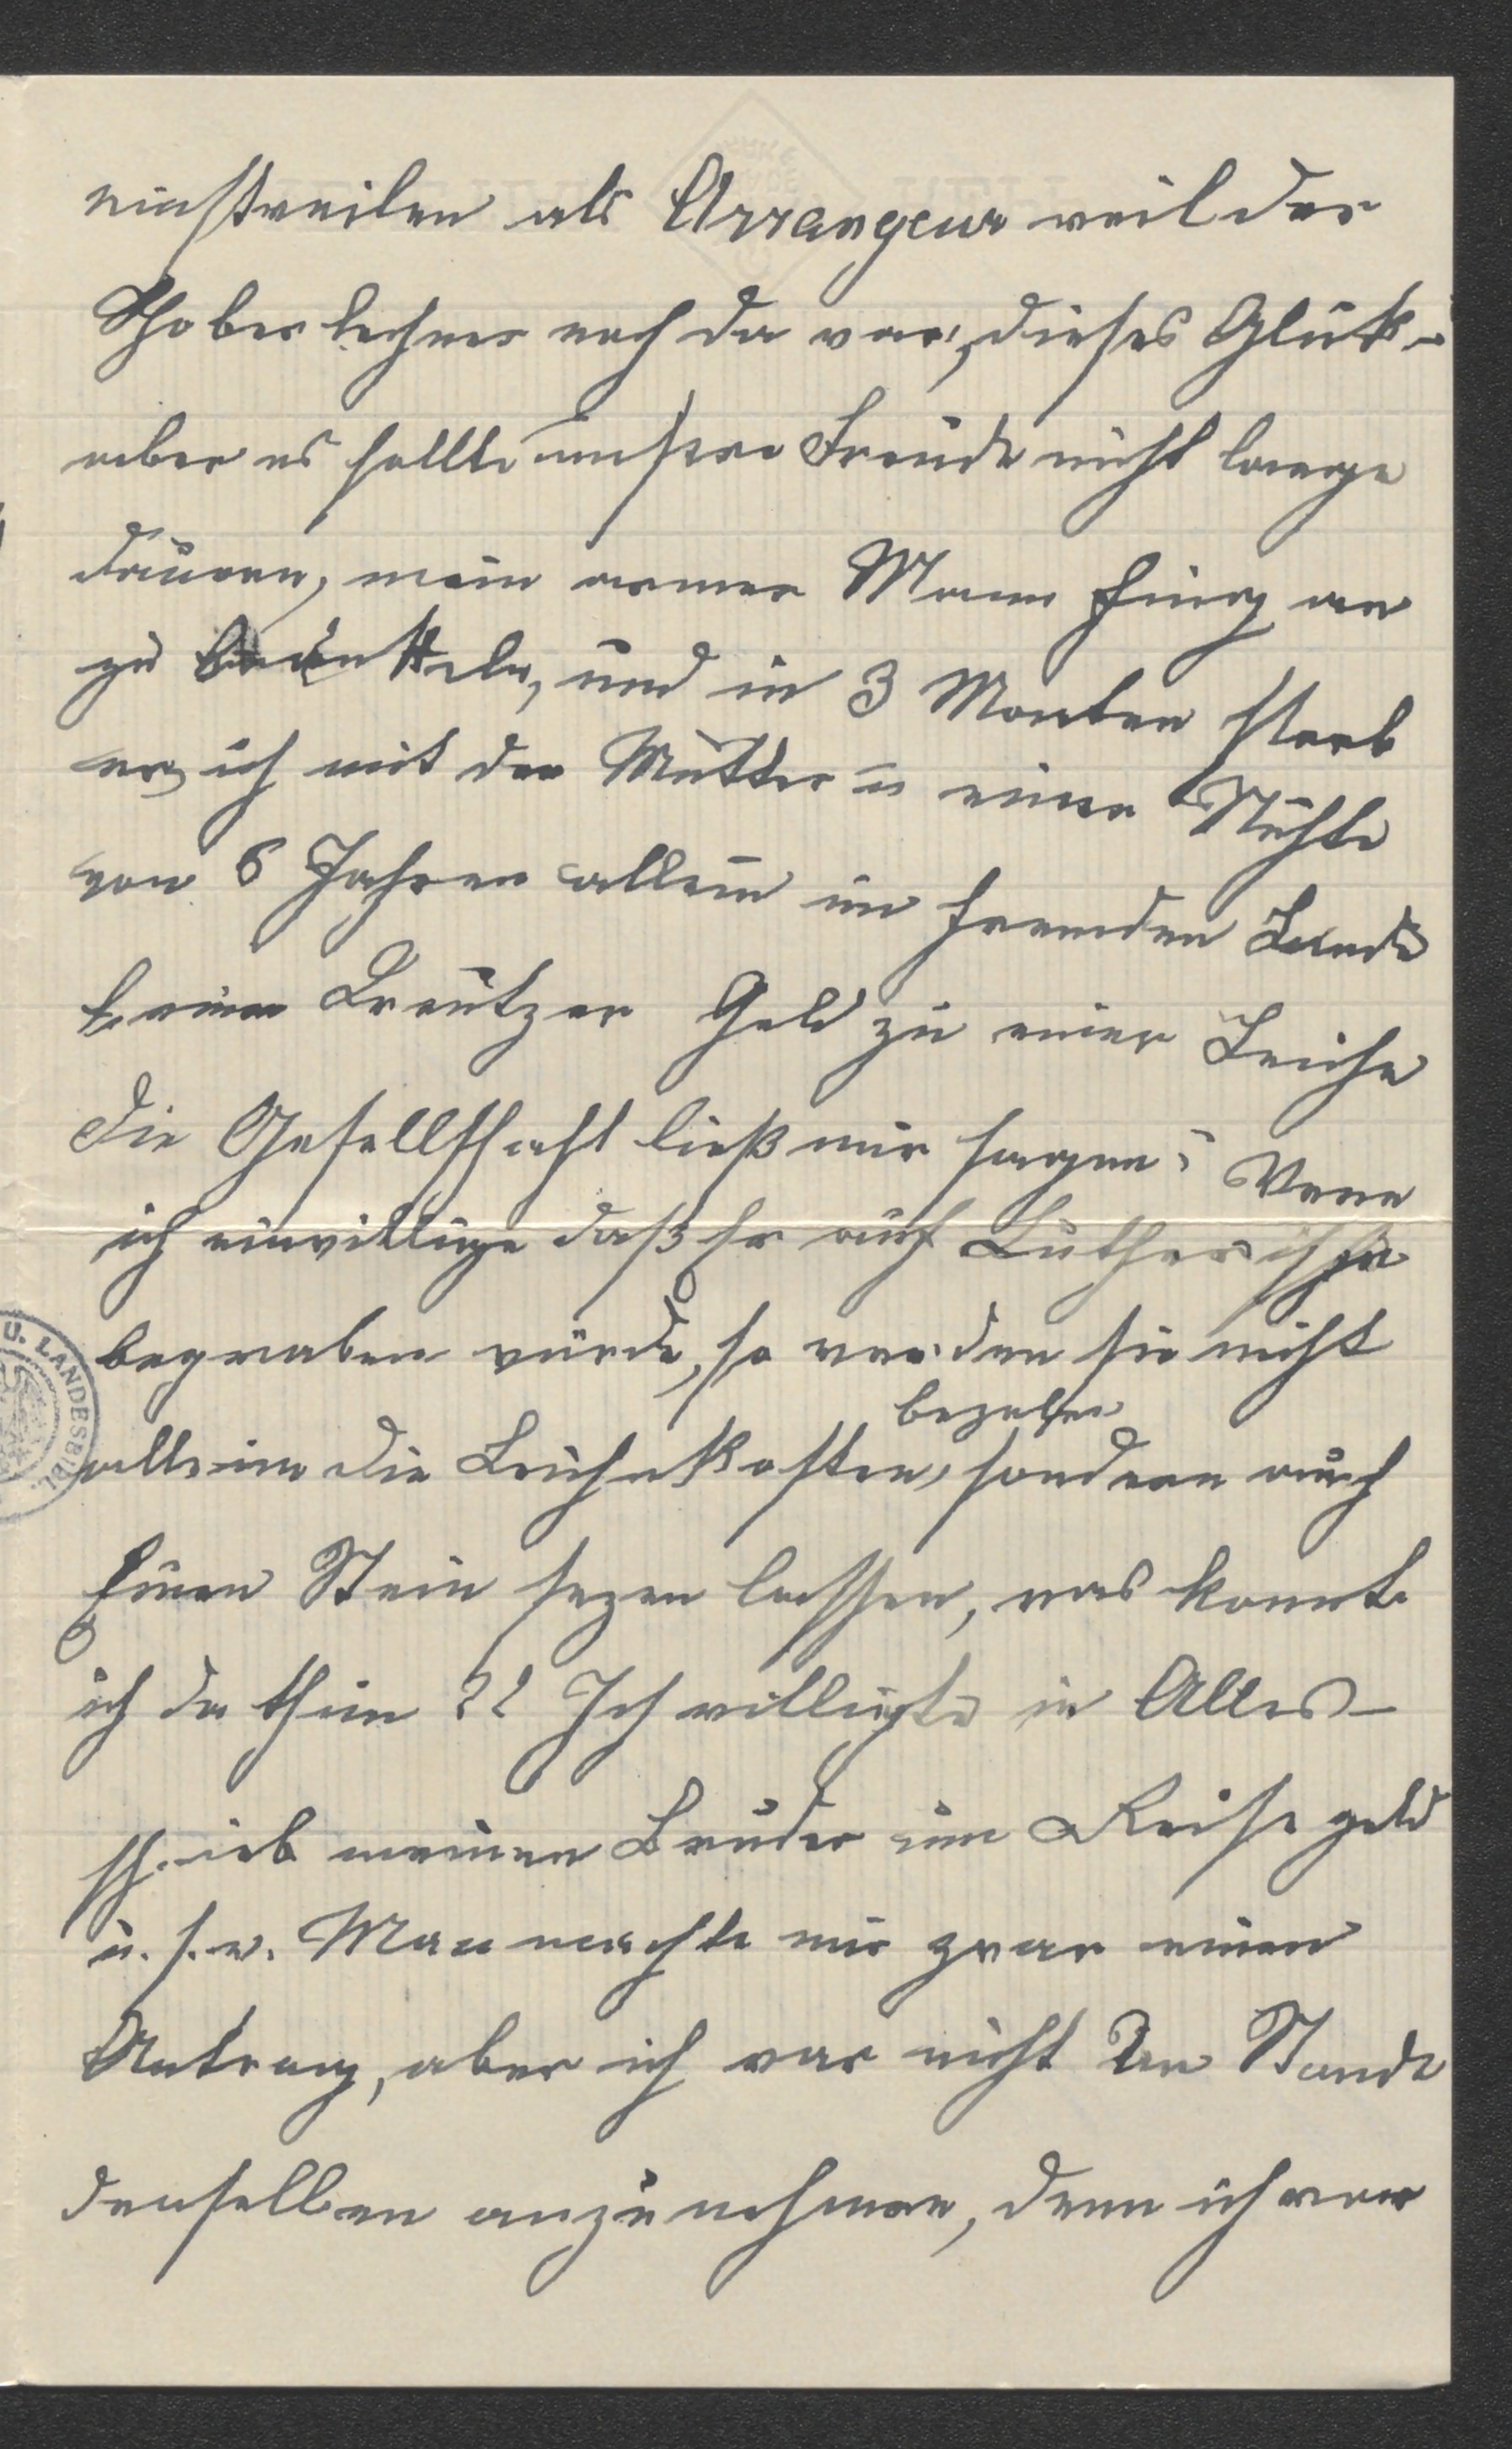 einstweilen als Arrangeur weil der
Schoberlechner noch da war, dieses Glück –
aber es sollte unsere Freude nicht lange
dauern, mein armer Mann fing an
zu kränkeln, und in 3 Monten starb
er, ich mit der Mutter u einer Nichte
von 6 Jahren allein im fremden Lande
keinen Kreutzer Geld zu einer Leiche
Die Gesellschaft ließ mir sagen: Wenn
ich einwillige daß Er auf Lutherische
begraben würde, so werden sie nicht
bezahlen
allein die Leichekosten, sondern auch
Einen Stein sezen lassen, was konnte
ich da thun ?! Ich willigte in Alles –
schrieb meinen Bruder um Reisegeld
u. s. w. Man machte mir zwar einen
Antrag, aber ich war nicht Im Stande
denselben anzunehmen, denn ich war
U. LANDESBIBL.